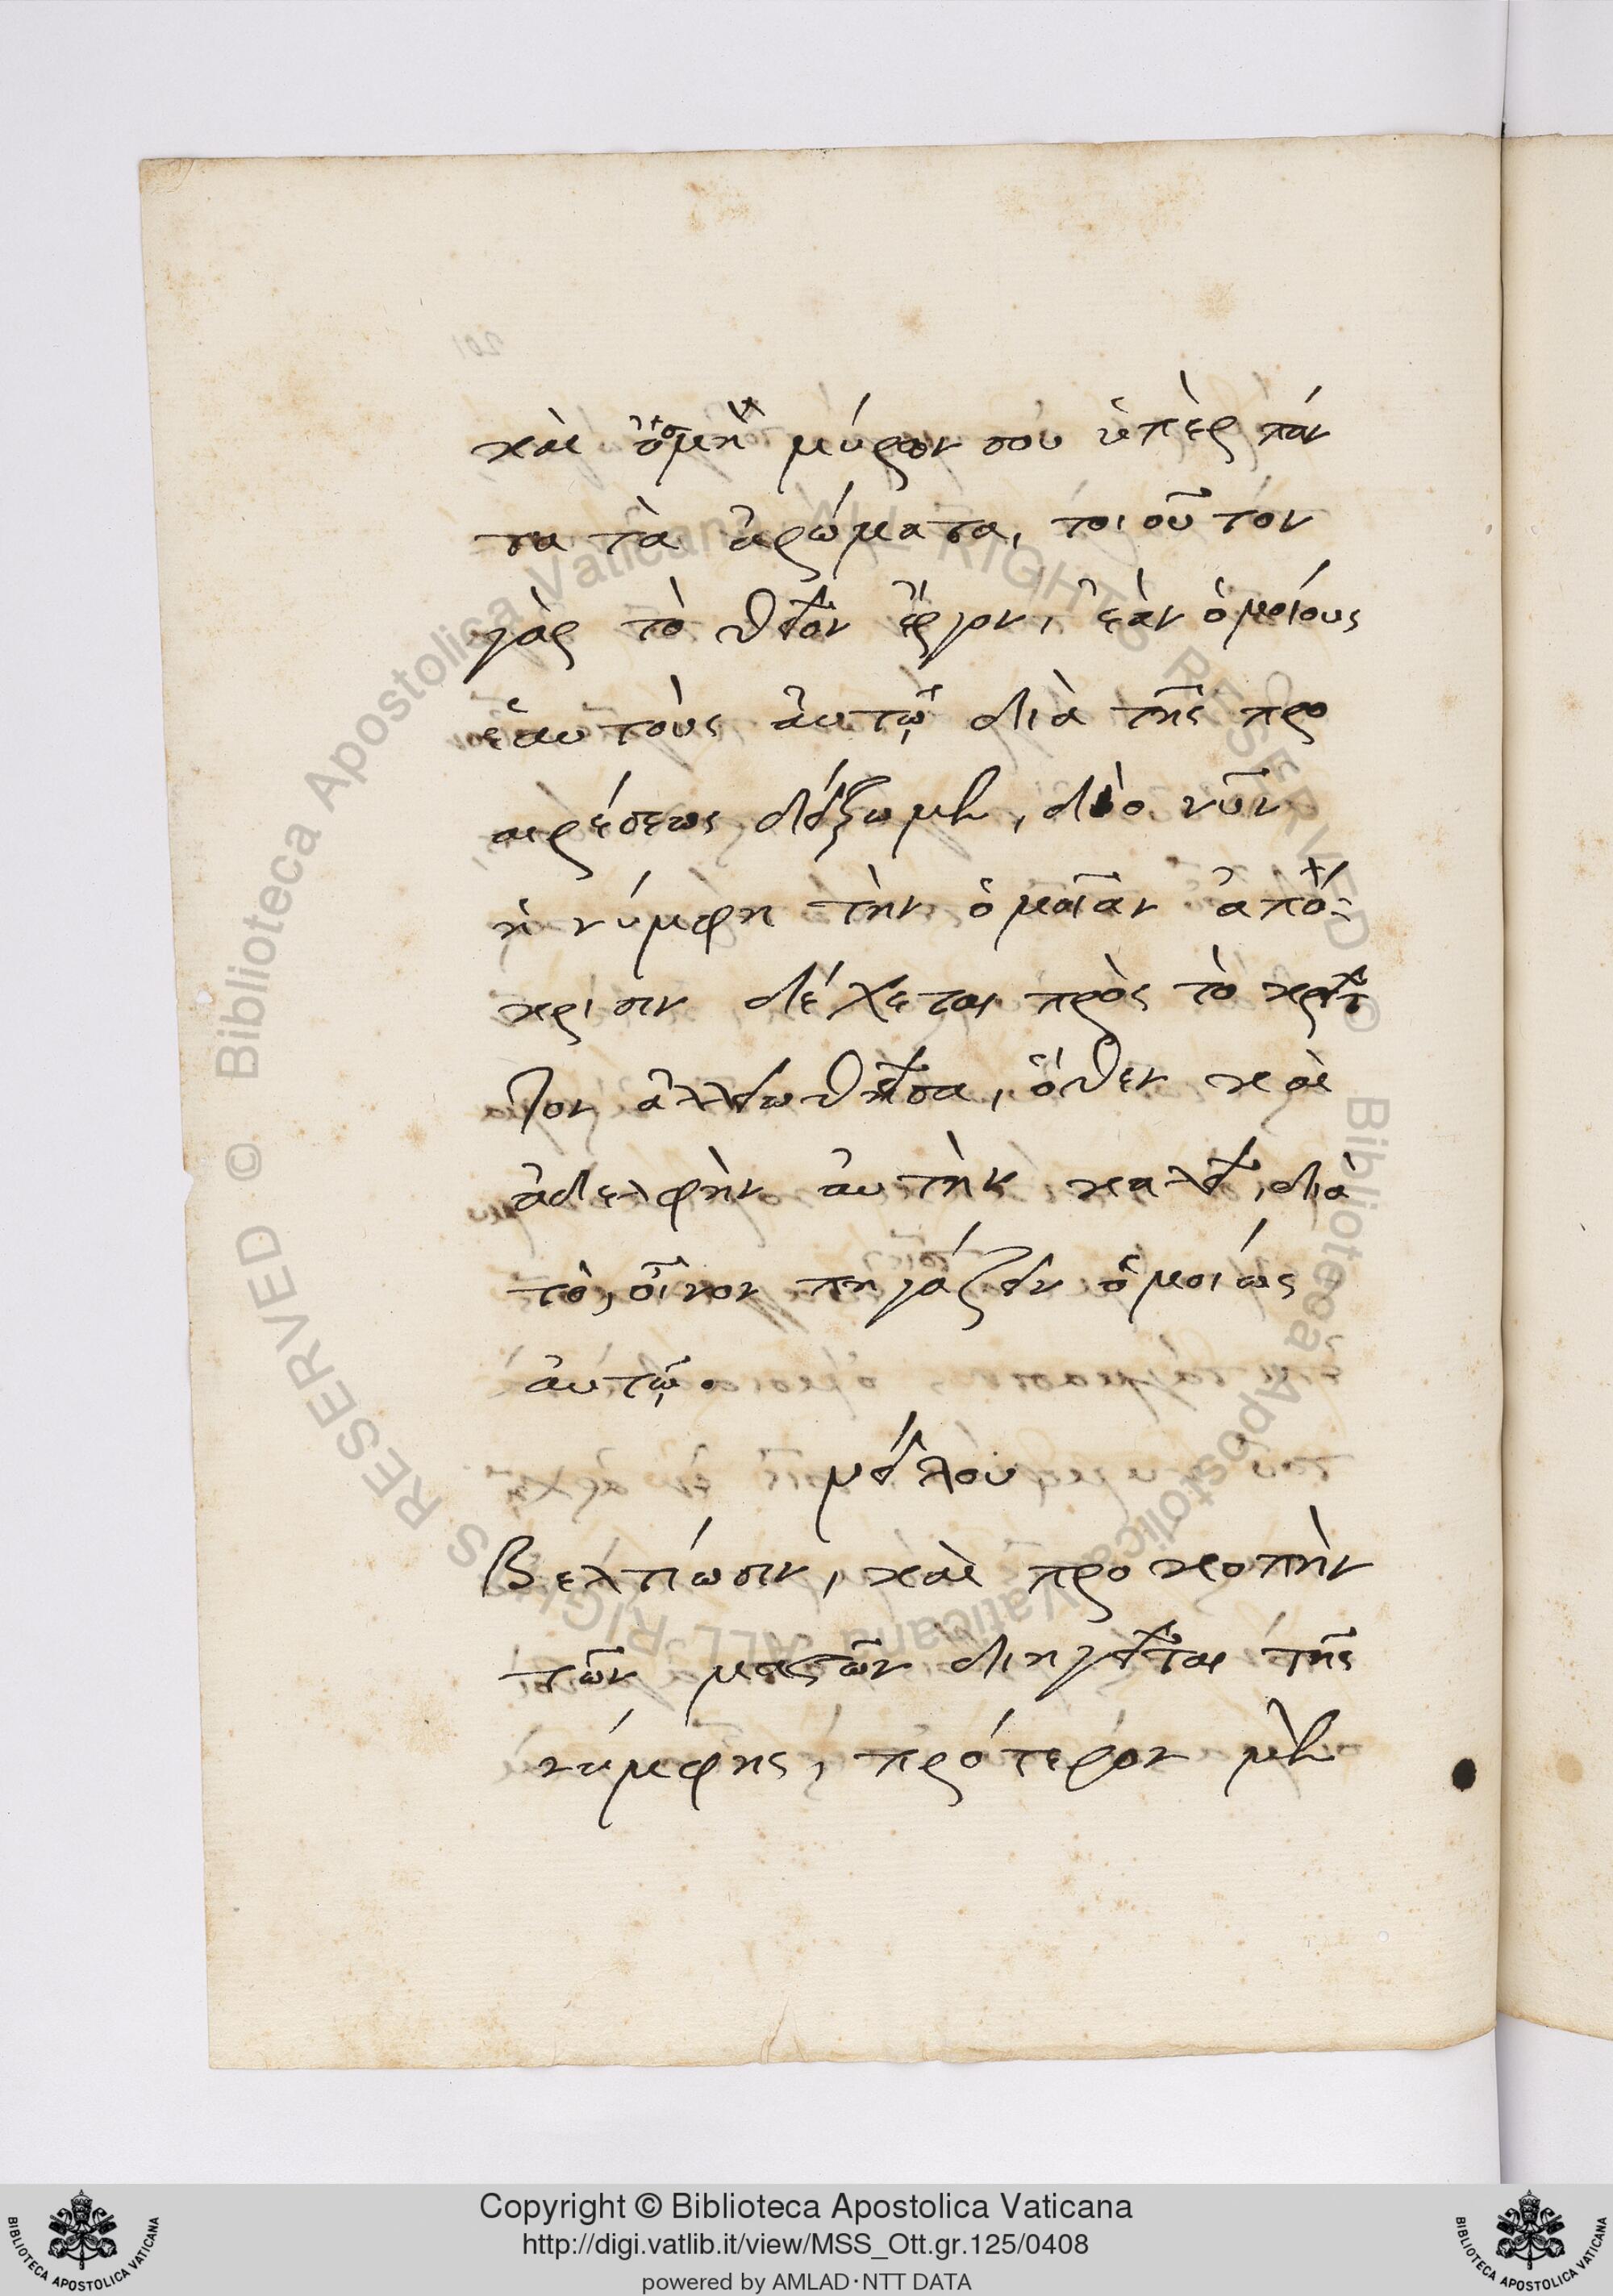 καὶ ὀσμὴ μύρων σου ὑπὲρ πάν
τα τὰ ἀρώματα, τοιοῦτον
γὰρ τὸ θεῖον ἔργον, ἐὰν ὁμοίους
ἑαυτοὺς αὐτῷ διὰ τῆς προ
αιρέσεως δείξωμεν, διὸ νῦν
ἡ νύμφη τὴν ὁμοίαν ἀπό
κρισιν δέχεται πρὸς τὸ κρεῖτ
τον ἀλλοιωθεῖσα, ὅθεν καὶ
ἀδελφὴν αὐτὴν καλεῖ, διὰ
τὸ, οἶνον πηγάζειν ὁμοίως
αὐτῷ.
νείλου
Βελτίωσιν, καὶ προκοπὴν
τῶν μαστῶν διηγεῖται τῆς
νύμφης, πρότερον μὲν
© Biblioteca Apostolica Vaticana ALL RIGHTS RESERVED
© Biblioteca Apostolica Vaticana ALL RIGHTS RESERVED
Copyright © Biblioteca Apostolica Vaticana
http://digi.vatlib.it/view/MSS_Ott.gr.125/0408
powered by AMLAD·NTT DATA
BIBLIOTECA APOSTOLICA VATICANA
BIBLIOTECA APOSTOLICA VATICANA